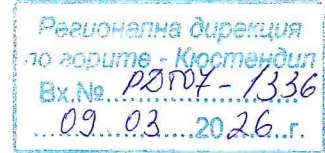 Регионална дирекция
по горите - Кюстендил
Вх.№ РДГ07-1336
09.03.2026.г.